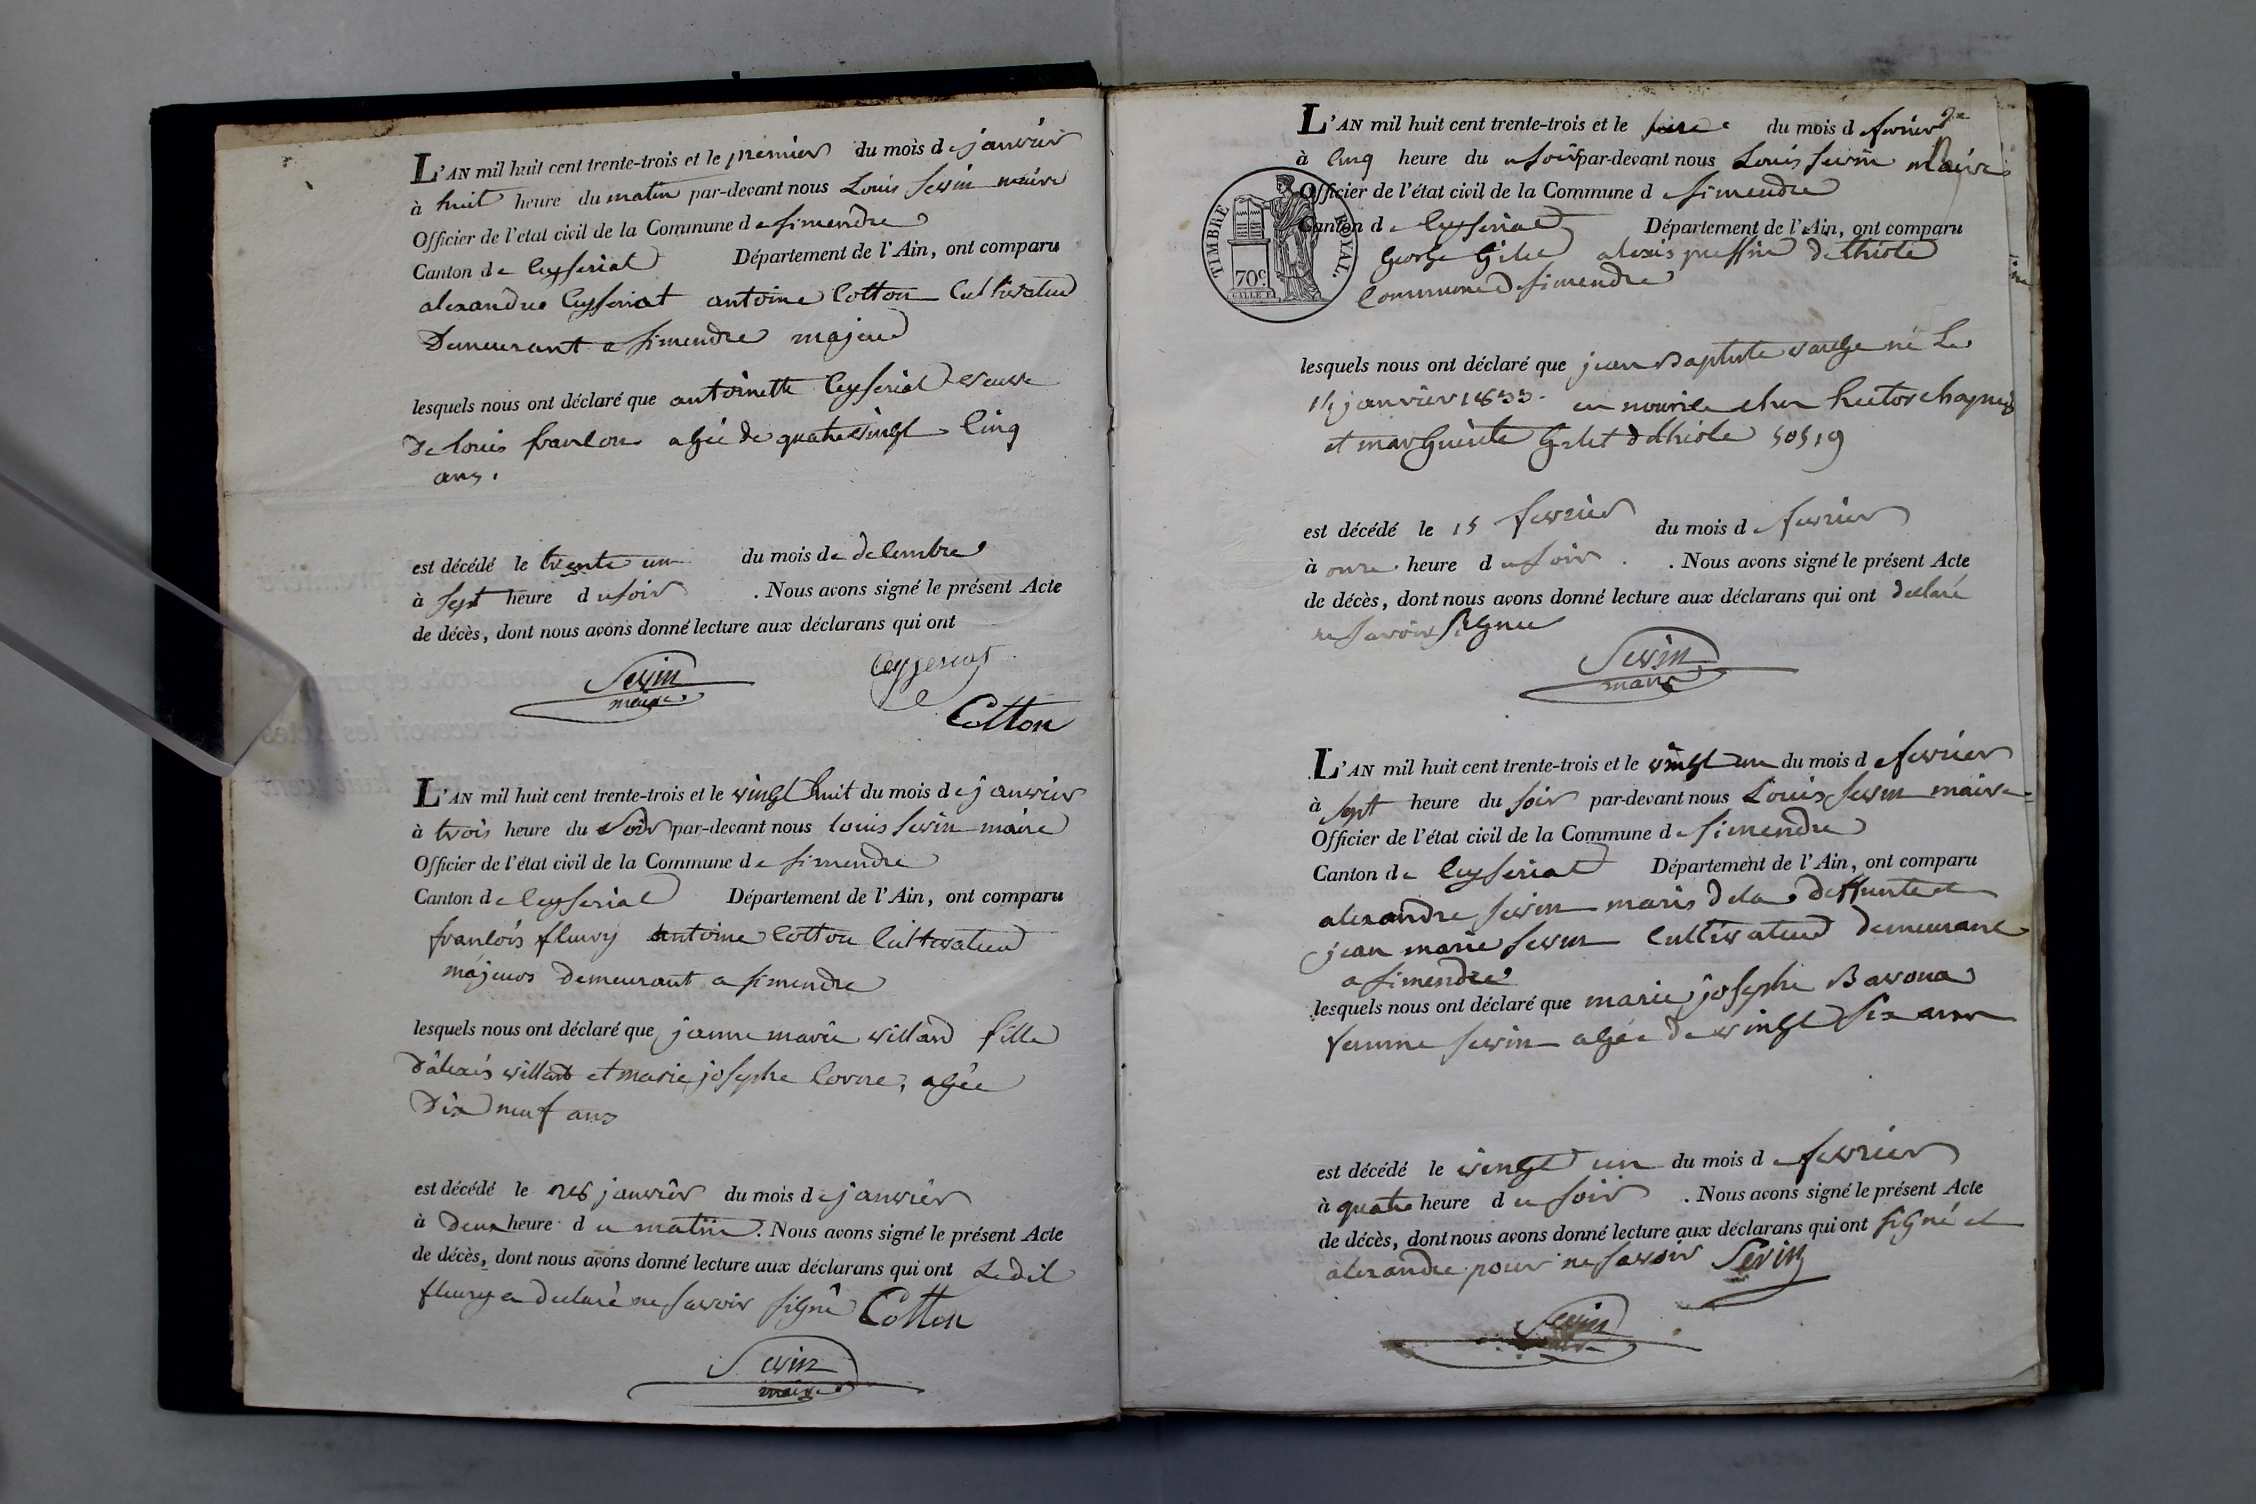 L'AN mil huit cent trente-trois et le premier du mois de janvier
à huit heure du matin par-devant nous Louis Sevin maire
Officier de l'état civil de la Commune de Simendre
Canton de Ceyseriat Département de l'Ain, ont comparu
alexandre Ceyseriat antoine Cotton Cultivateur
Demeurant a Simendre majeur
lesquels nous ont déclaré que antoinette Ceyseriat veuve
De Louis francon agée de quatre vingt cinq
ans.
est décédé le trente un du mois de decembre
à sept heure du soir . Nous avons signé le présent Acte
de décès, dont nous avons donné lecture aux déclarans qui ont
Sevin
maire
Ceyseriat
Cotton
L'AN mil huit cent trente-trois et le vingt huit du mois de janvier
à trois heure du Soir par-devant nous louis Sevin maire
Officier de l'état civil de la Commune de Simendre
Canton de Ceyseriat Département de l'Ain, ont comparu
francois fleury antoine Cotton Cultivateur
majeurs demeurant a Simendre
lesquels nous ont déclaré que janne marie villard fille
D'alexis villard et marie josephe , agée
Dix neuf ans
est décédé le janvier du mois de janvier
à Deux heure du matin . Nous avons signé le présent Acte
de décès, dont nous avons donné lecture aux déclarans qui ont Ledit
fleury a declaré ne savoir signé Cotton
Sevin
maire
L'AN mil huit cent trente-trois et le du mois de fevrier
à cinq heure du soir par-devant nous Louis Sevin Maire
Officier de l'état civil de la Commune de Simendre
Canton de Ceyseriat Département de l'Ain, ont comparu
TIMBRE ROYAL.
70c.
George alexis Dethiole
Commune de Simendre
lesquels nous ont déclaré que jean Baptiste né Le
janvier 1833. en nourice cher hector
et marguerite d thiole
est décédé le 15 fevrier du mois de fevrier
à onze heure du soir . Nous avons signé le présent Acte
de décès, dont nous avons donné lecture aux déclarans qui ont declaré
ne savoir signer
Sevin
maire
L'AN mil huit cent trente-trois et le vingt un du mois de fevrier
à sept heure du soir par-devant nous Louis Sevin maire
Officier de l'état civil de la Commune de Simendre
Canton de Ceyseriat Département de l'Ain, ont comparu
alexandre sevin maris de la deffunte et
jean marie Sevin Cultivateur demeurant
a Simendre
lesquels nous ont déclaré que marie josephe Bavoux
femme sevin agée de vingt six ans
est décédé le vingt un du mois de fevrier
à quatre heure du soir . Nous avons signé le présent Acte
de décès, dont nous avons donné lecture aux déclarans qui ont signé et
alexandre pour ne savoir Sevin
Sevin